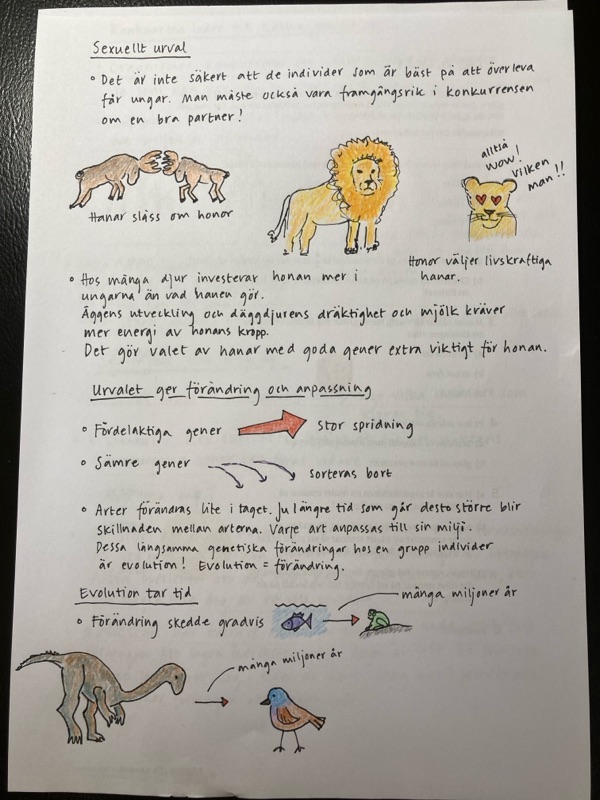 Sexuellt urval
• Det är inte säkert att de individer som är bäst på att överleva
får ungar. Man måste också vara framgångsrik i konkurrensen
om en bra partner!
alltså
wow!
vilken
man!!
Hanar slåss om honor
Honor väljer livskraftiga
hanar.
• Hos många djur investerar honan mer i
ungarna än vad hanen gör.
Äggens utveckling och däggdjurens dräktighet och mjölk kräver
mer energi av honans kropp.
Det gör valet av hanar med goda gener extra viktigt för honan.
Urvalet ger förändring och anpassning
• Fördelaktiga gener
Stor spridning
• Sämre gener
sorteras bort
• Arter förändras lite i taget. Ju längre tid som går desto större blir
skillnaden mellan arterna. Varje art anpassas till sin miljö.
Dessa långsamma genetiska förändringar hos en grupp individer
är evolution! Evolution = förändring.
Evolution tar tid
många miljoner år
• Förändring skedde gradvis
många miljoner år